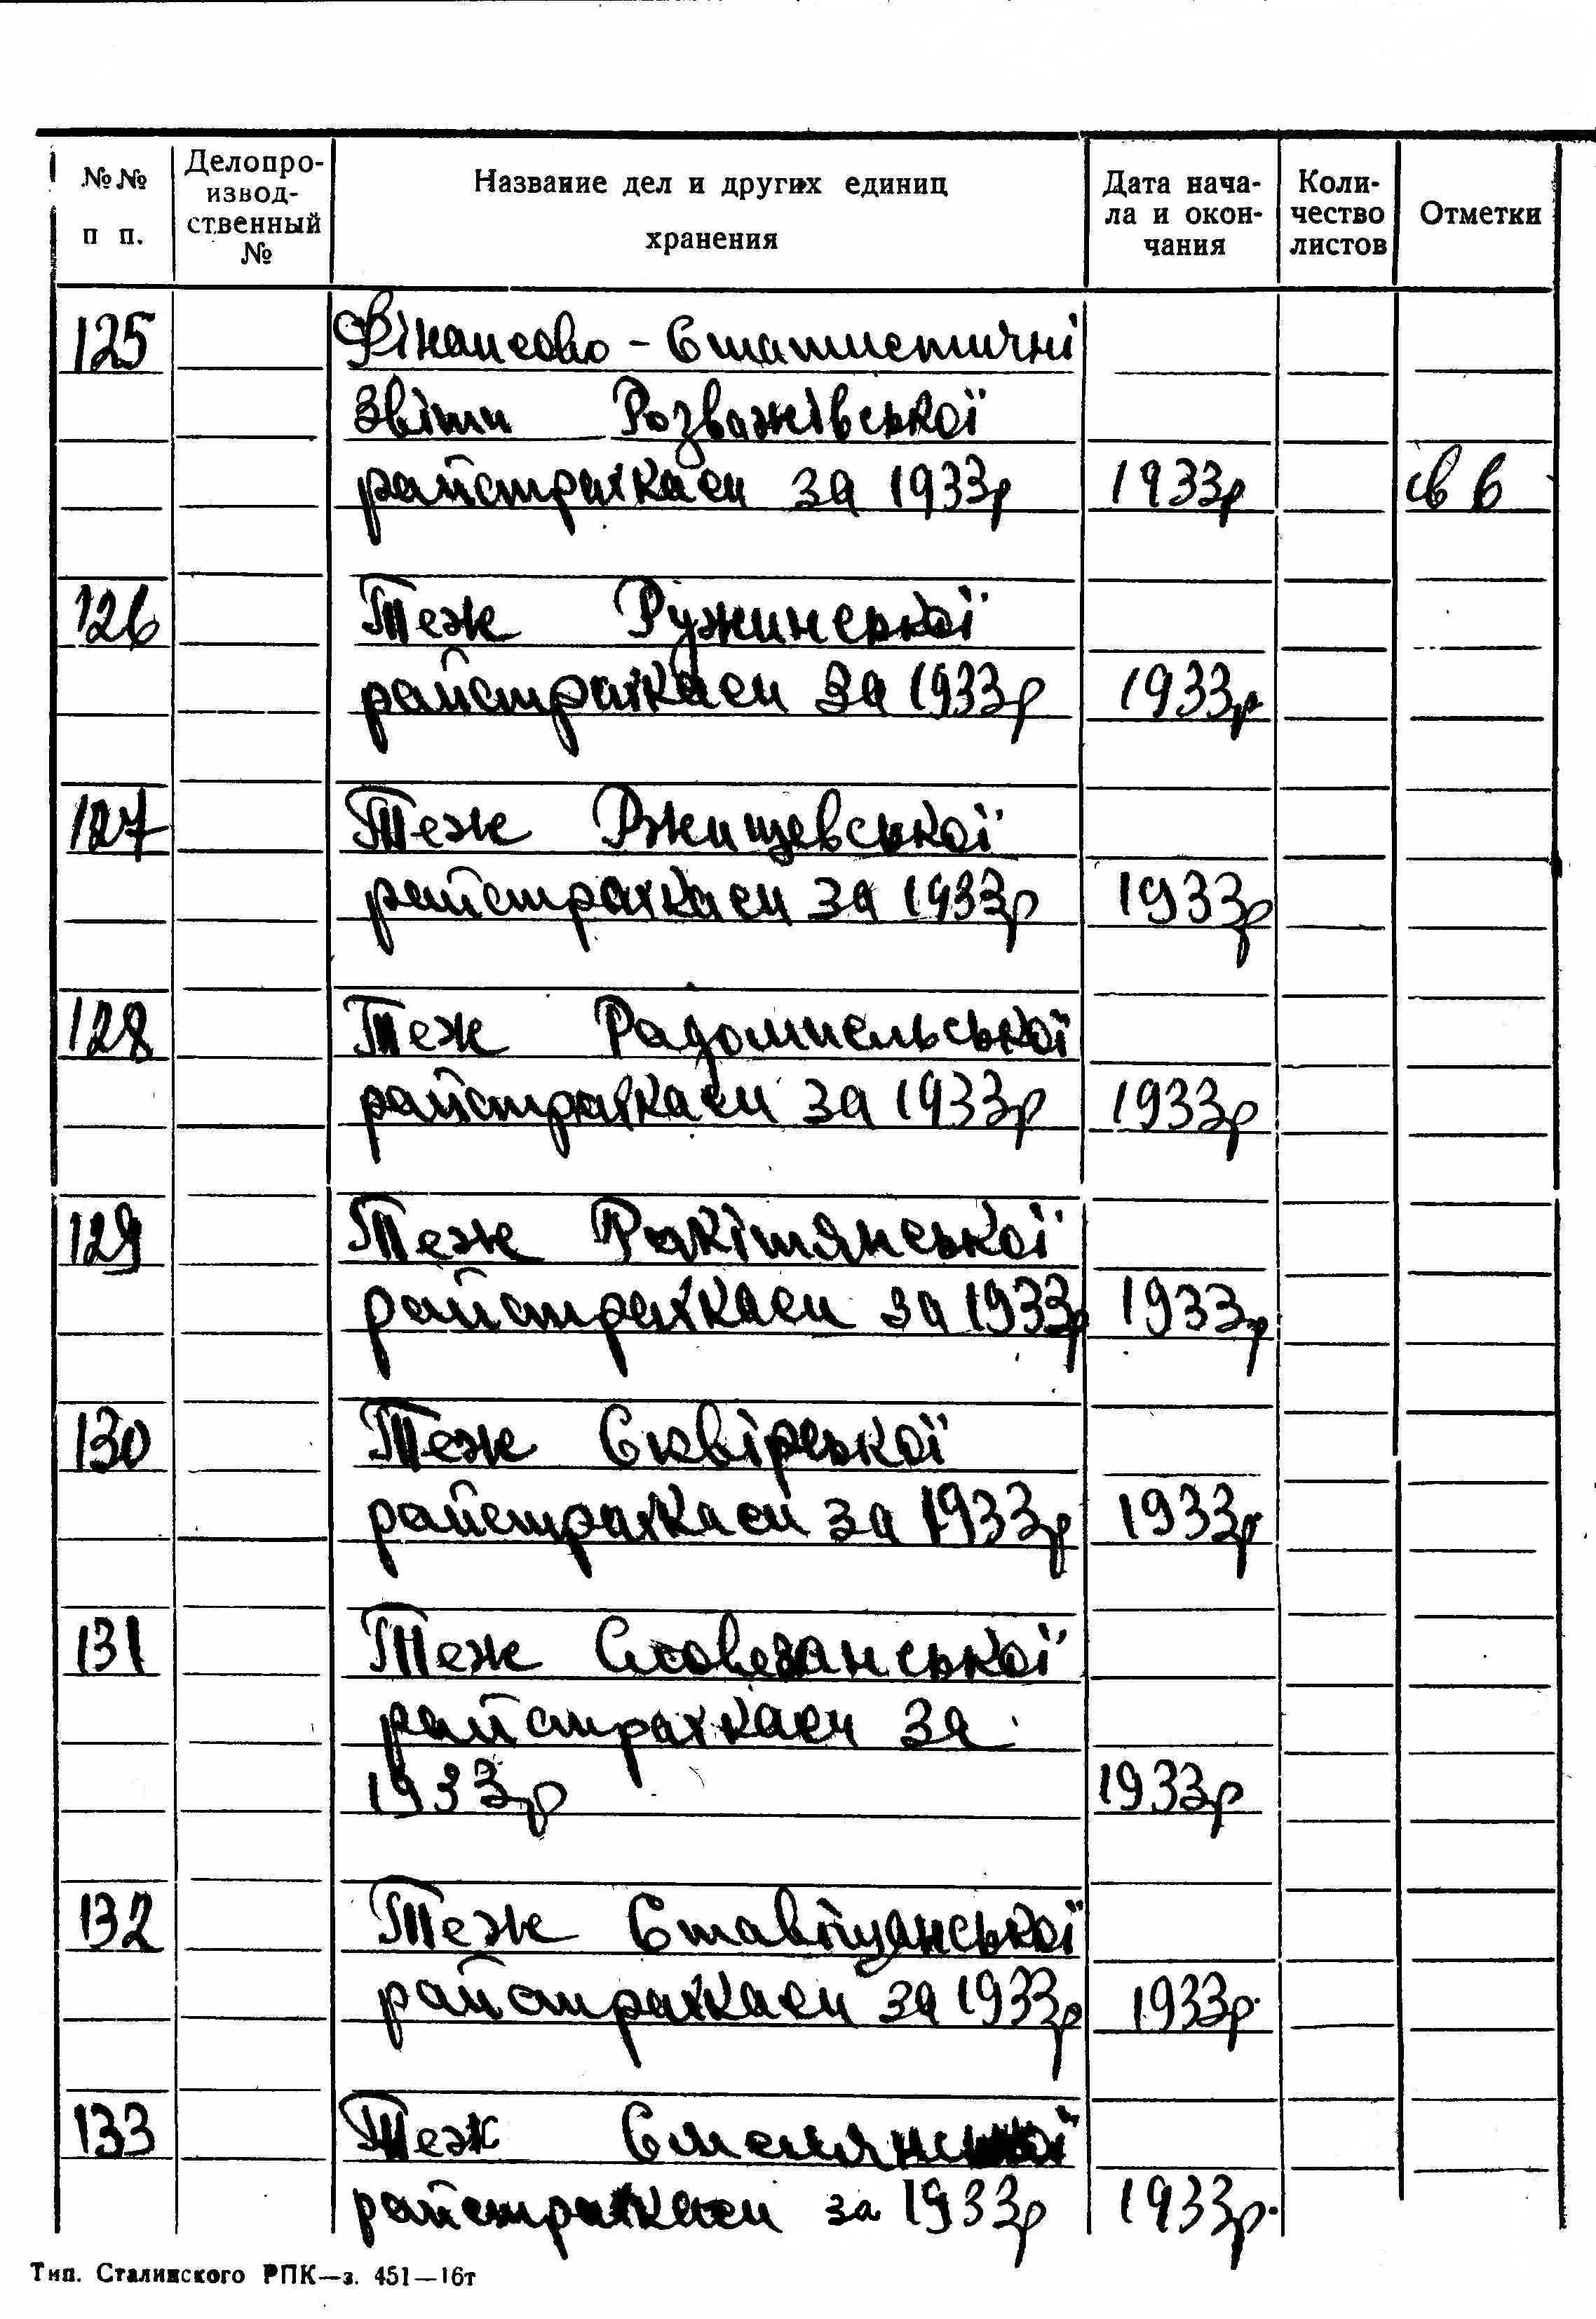 №№ п п.
Делопро-
извод-
ственный
№
Название дел и других единиц
хранения
Дата нача-
ла и окон-
чания
Коли-
чество
листов
Отметки
125 Фінансово - Статистичні
Звіти Розважівської
райстрахкаси за 1933р 1933р
126 Теж Ружинської
райстрахкаси за 1933р 1933р
127 Теж Ржищевської
райстрахкаси за 1933р 1933р
128 Теж Радомисльської
райстрахкаси за 1933р 1933р
129 Теж Ракітянської
райстрахкаси за 1933р 1933р
130 Теж Сквірської
райстрахкаси за 1933р 1933р
131 Теж Словечанської
райстрахкаси за
1933р 1933р
132 Теж Ставіщанської
райстрахкаси за 1933р 1933р.
133 Теж Смілянської
райстрахкаси за 1933р 1933р.
Тип. Сталинского РПК—з. 451—16т